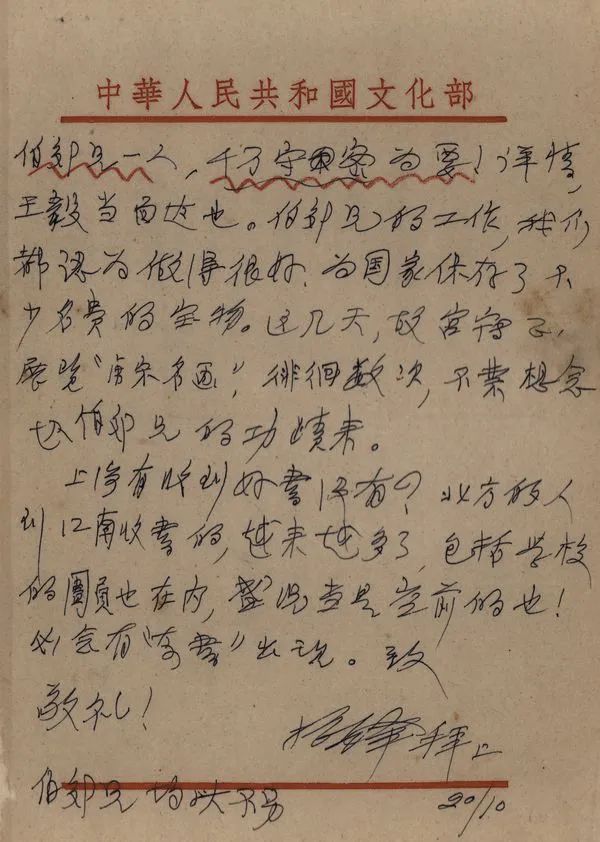 中華人民共和國文化部
伯郊兄一人，千万守密为要！详情，
王毅当面达也。伯郊兄的工作，我们
都認为做得很好，为国家保存了不
少名貴的宝物。这几天，故宫
展览“唐宋名画”，徘徊数次，不禁想念
伯郊兄的功绩来。
上海有收到好書没有？北方的人
到江南收書的，越来越多了，包括学校
的圕員也在内，盛况当是空前的也！
必会有“奇書”出现。致
敬礼！
振鐸拜上
20/10
伯郊兄均此不另